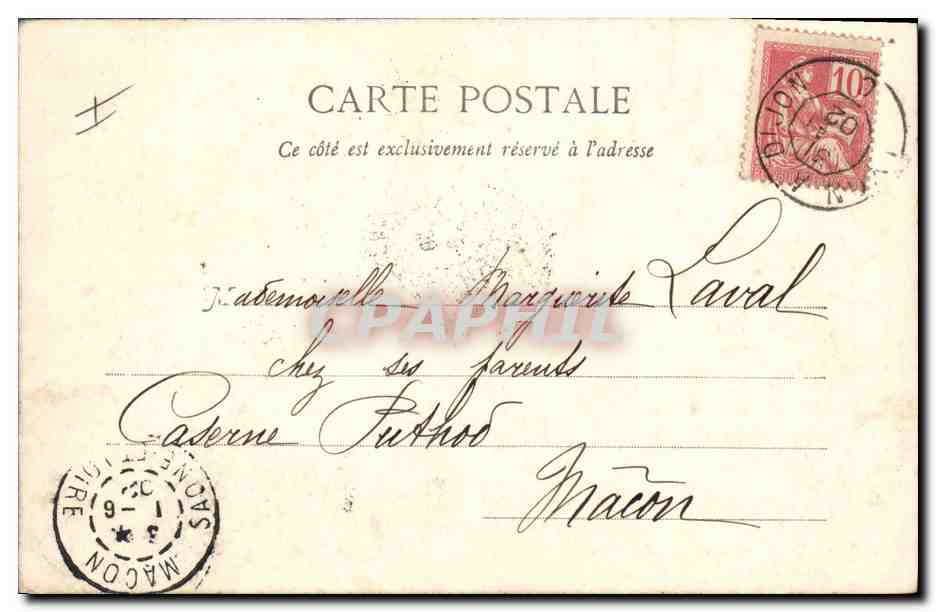 CARTE POSTALE
Ce côté est exclusivement réservé à l'adresse
10
DIJON
02
Mademoiselle Marguerite Laval
CPAPHIL
chez ses parents
Caserne Puthod
Mâcon
SAONE ET LOIRE
MACON